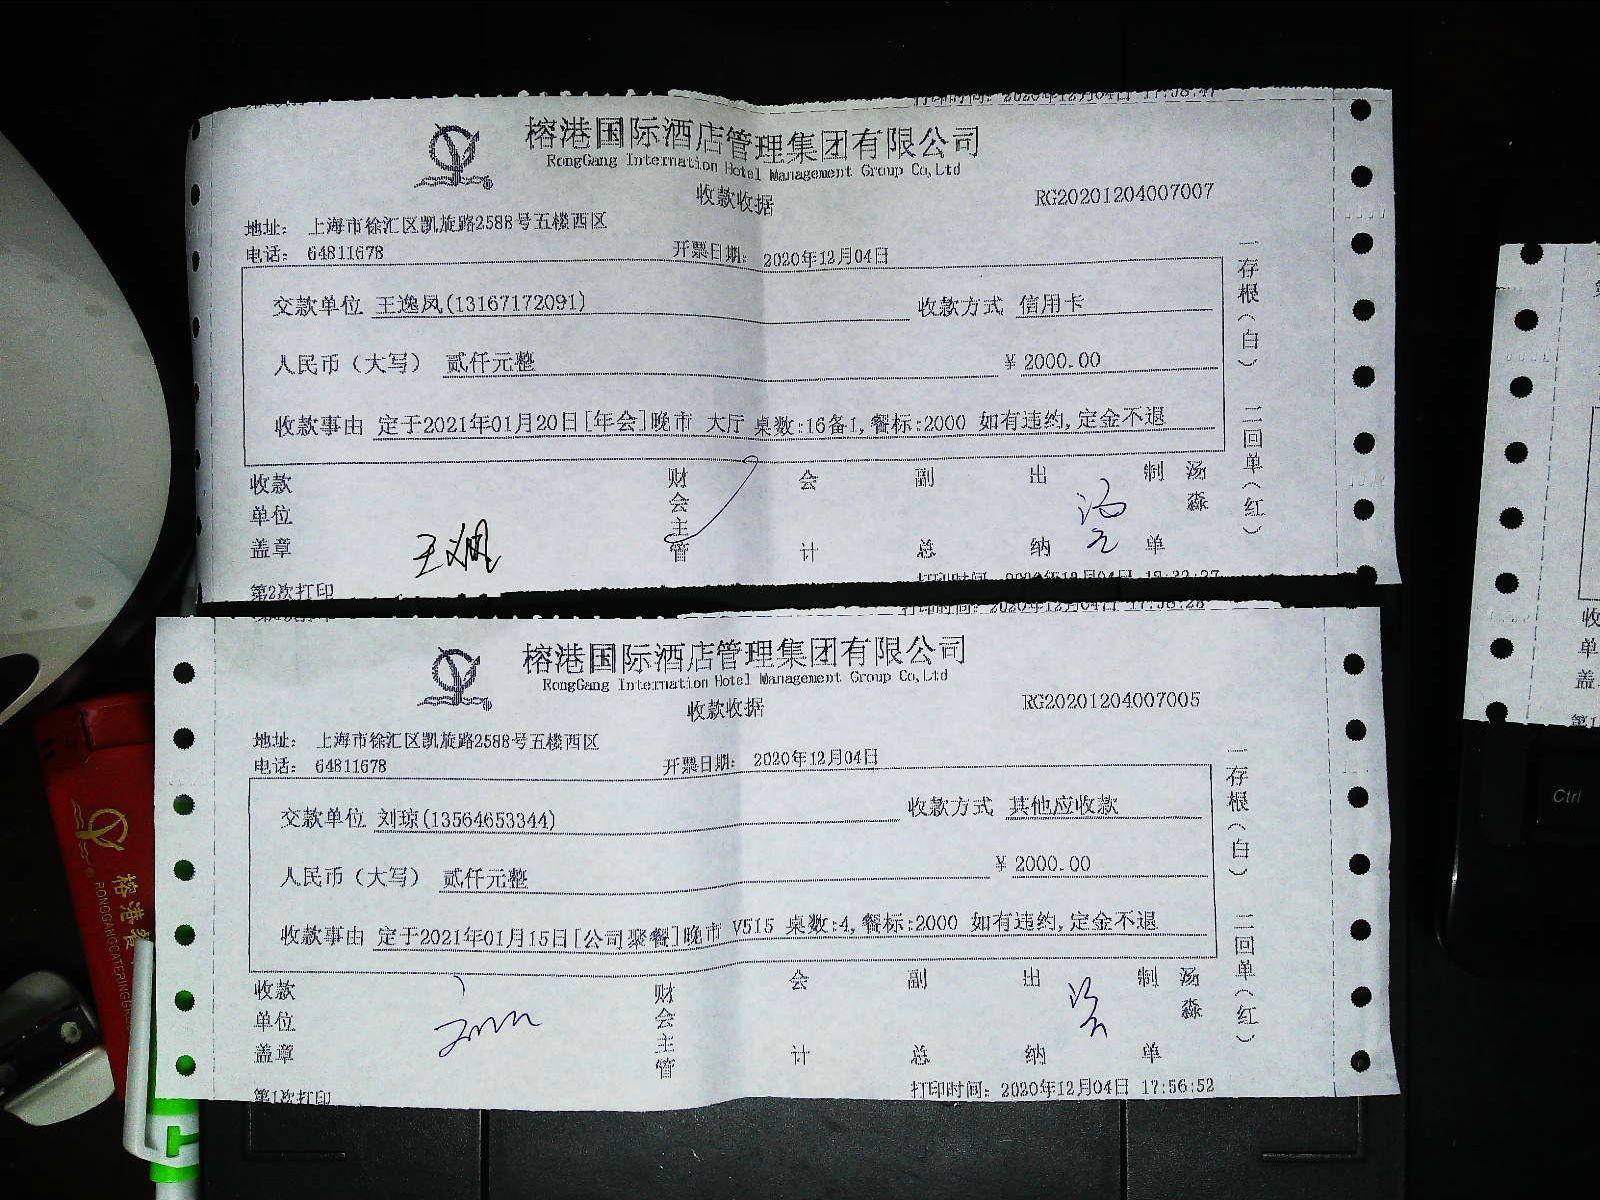 打印时间: 2020年12月04日 17:58:47
榕港国际酒店管理集团有限公司
RongGang Internation Hotel Management Group Co,Ltd
收款收据
RG20201204007007
地址: 上海市徐汇区凯旋路2588号五楼西区
电话: 64811678
开票日期: 2020年12月04日
交款单位 王逸凤(13167172091) 收款方式 信用卡
人民币（大写） 贰仟元整 ¥ 2000.00
收款事由 定于2021年01月20日[年会]晚市 大厅 桌数:16备1,餐标:2000 如有违约,定金不退
收款单位盖章 财会主管 会计 副总 出纳 制单 汤淼
一存根（白） 二回单（红）
第2次打印 打印时间: 2020年12月04日 18:32:27
打印时间: 2020年12月04日 17:56:28
榕港国际酒店管理集团有限公司
RongGang Internation Hotel Management Group Co,Ltd
收款收据
RG20201204007005
地址: 上海市徐汇区凯旋路2588号五楼西区
电话: 64811678
开票日期: 2020年12月04日
交款单位 刘琼(13564653344) 收款方式 其他应收款
人民币（大写） 贰仟元整 ¥ 2000.00
收款事由 定于2021年01月15日[公司聚餐]晚市 V515 桌数:4,餐标:2000 如有违约,定金不退
收款单位盖章 财会主管 会计 副总 出纳 制单 汤淼
一存根（白） 二回单（红）
第1次打印 打印时间: 2020年12月04日 17:56:52
榕港餐
RONGGANGCATERINGGR
收
单
盖
第1
Ctrl